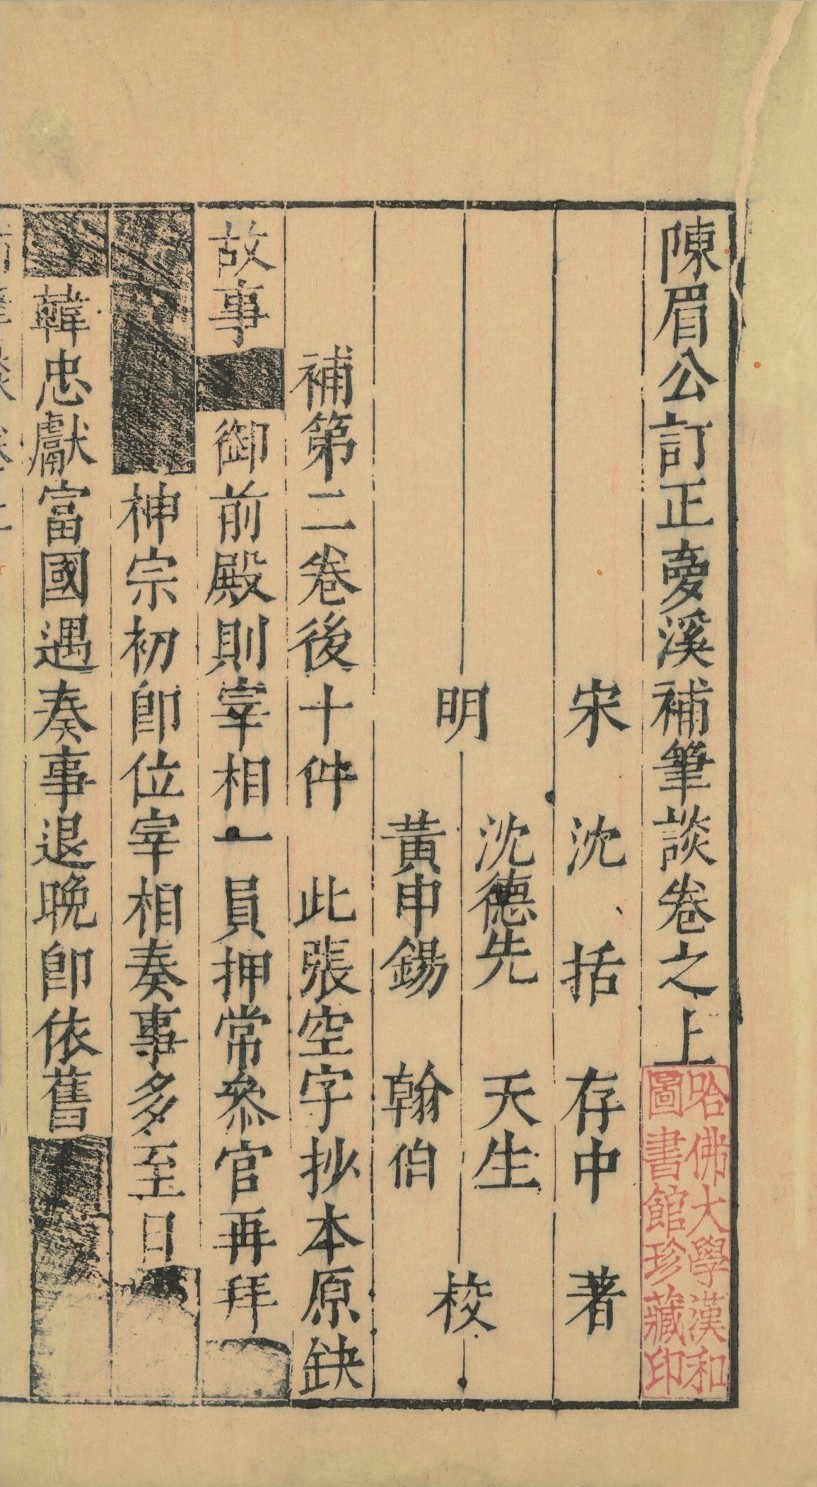 陳眉公訂正夢溪補筆談卷之上
宋 沈括 存中 著
沈德先 天生
明 校
黃申錫 翰伯
補第二卷後十件 此張空字抄本原缺
故事 御前殿則宰相一員押常叅官再拜
神宗初卽位宰相奏事多至日
韓忠獻富國遇奏事退晚卽依舊
哈佛大學漢和
圖書館珍藏印